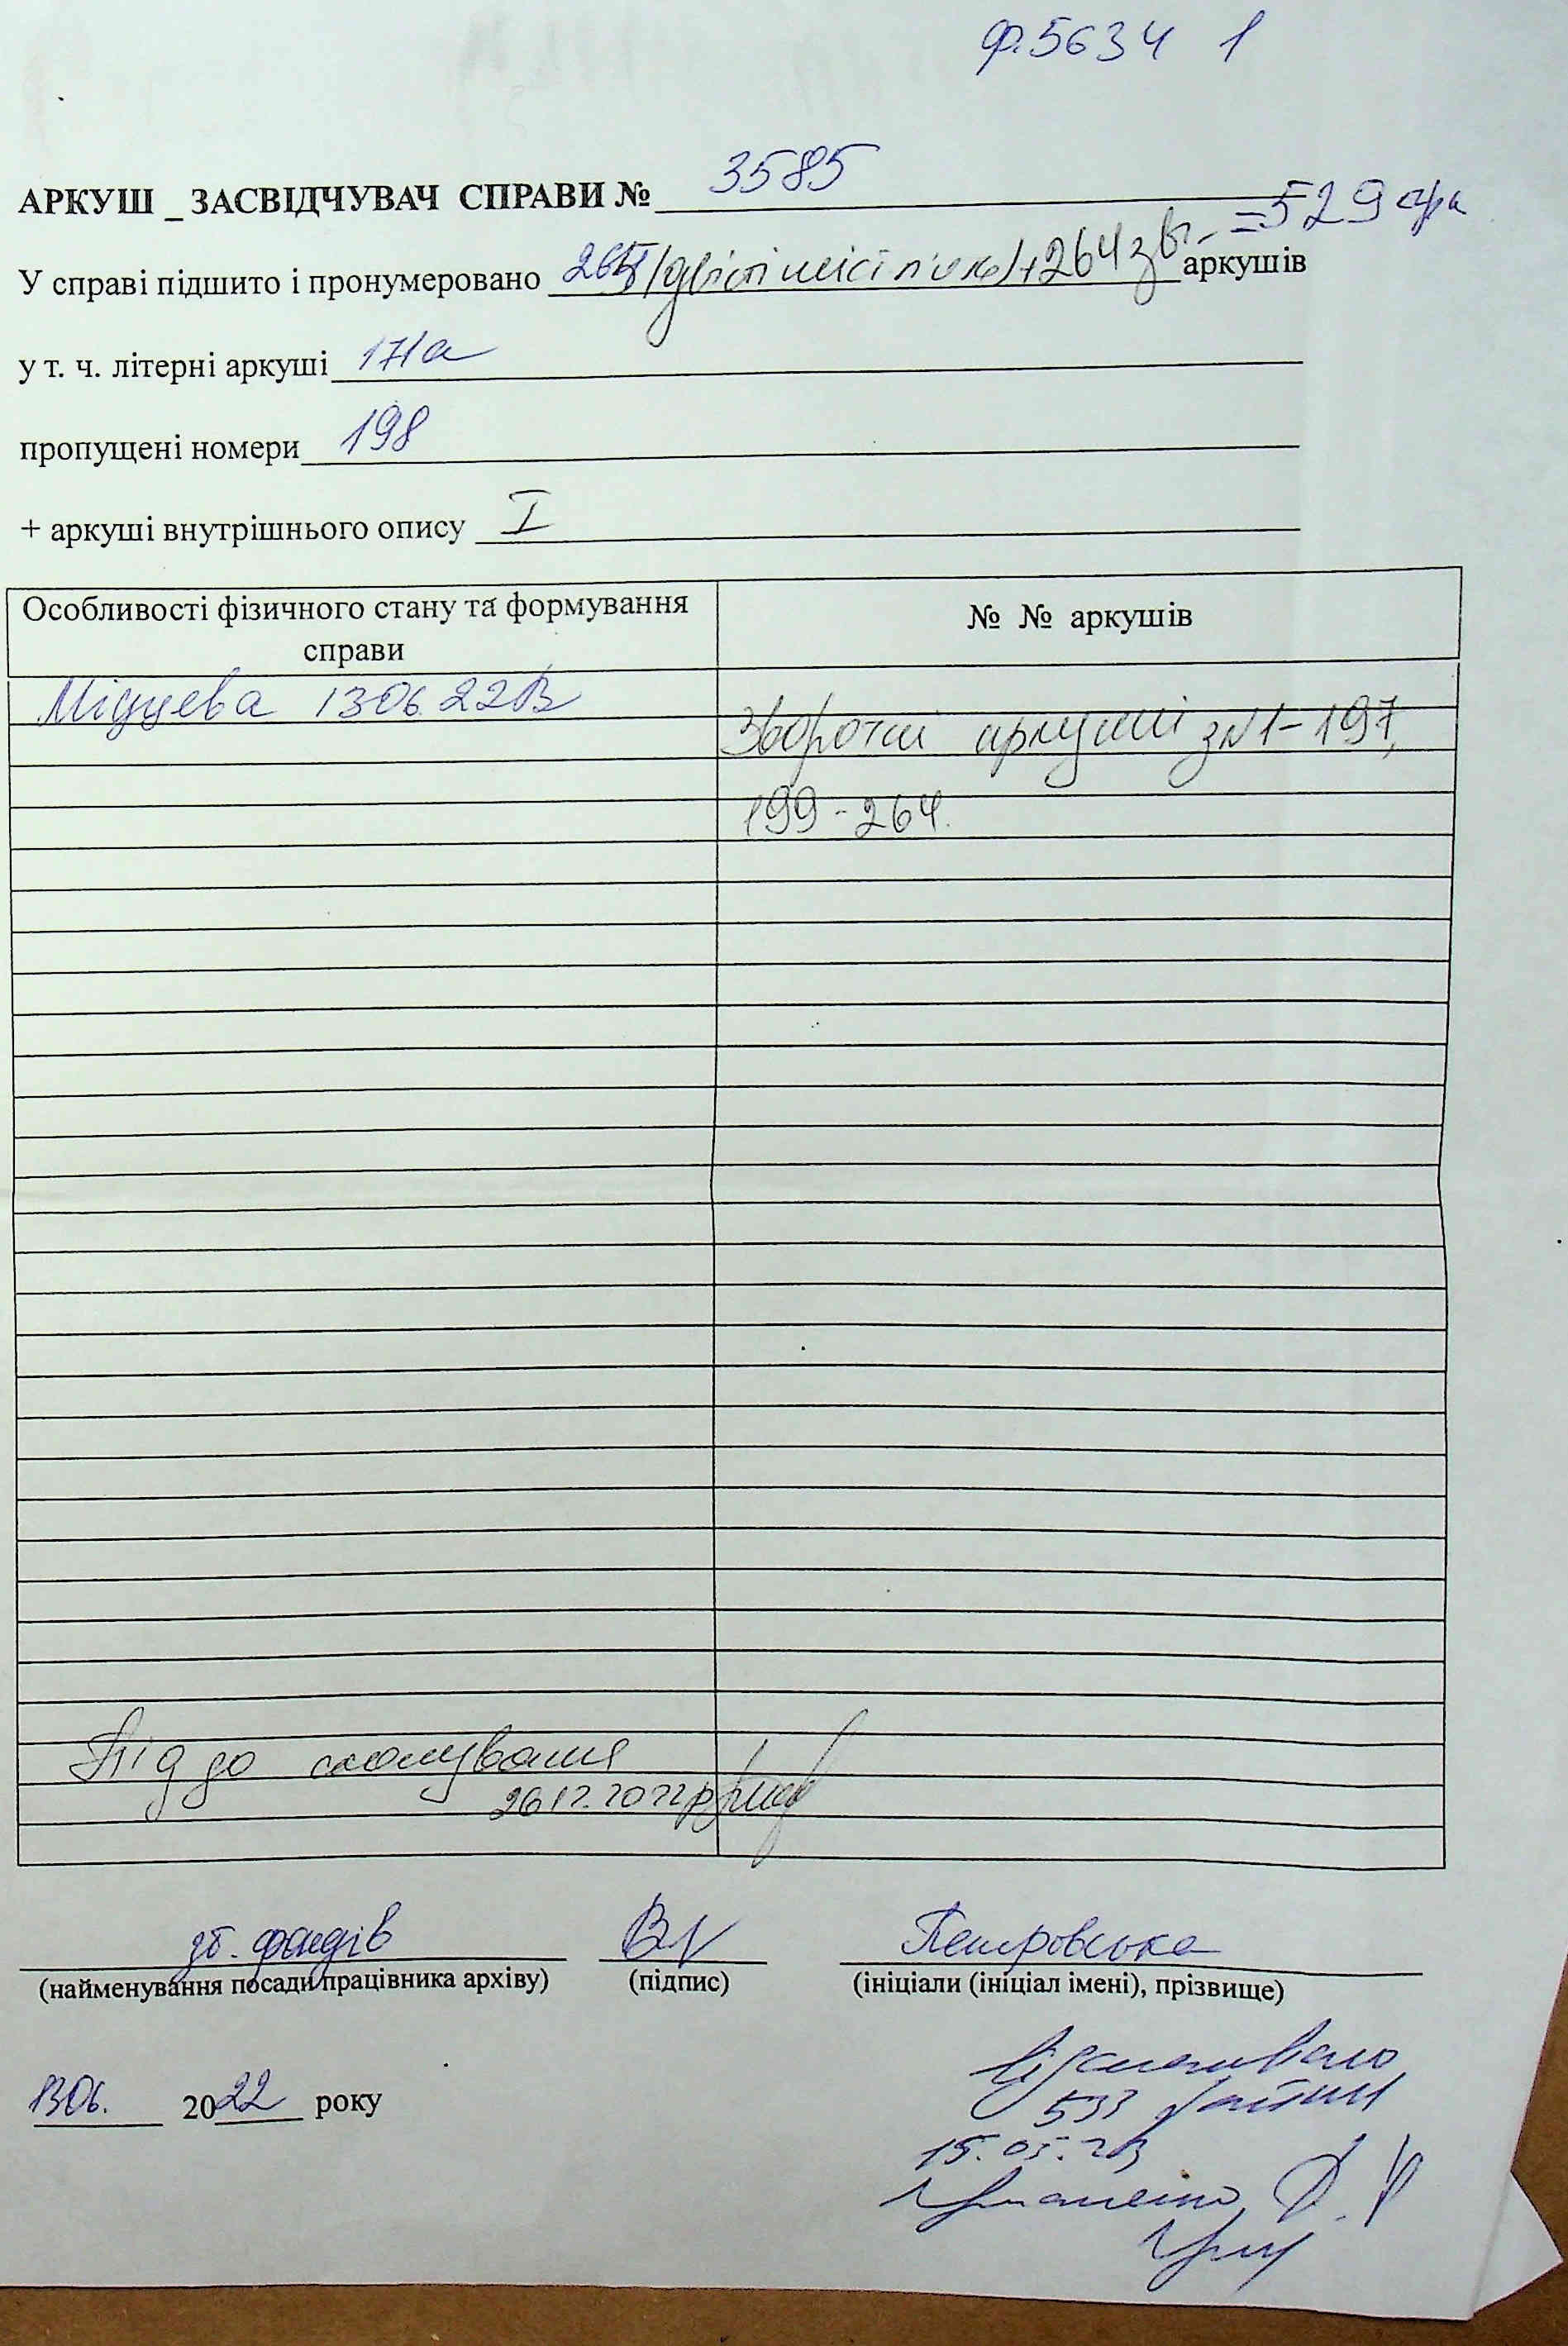 ф.5634 1
АРКУШ _ ЗАСВІДЧУВАЧ СПРАВИ № 3585
=529
У справі підшито і пронумеровано 265 /двісті шістд п'ять/+264 зв. аркушів
у т. ч. літерні аркуші 171а
пропущені номери 198
+ аркуші внутрішнього опису I
Особливості фізичного стану та формування справи
№ № аркушів
13.06.22
Зворотні аркуші з №1-197,
199-264.
Під до сканування
26.12.2022р
зб. фондів
Петровська
(найменування посади працівника архіву) (підпис) (ініціали (ініціал імені), прізвище)
13.06. 2022 року
Відскановано
533
15.05.23